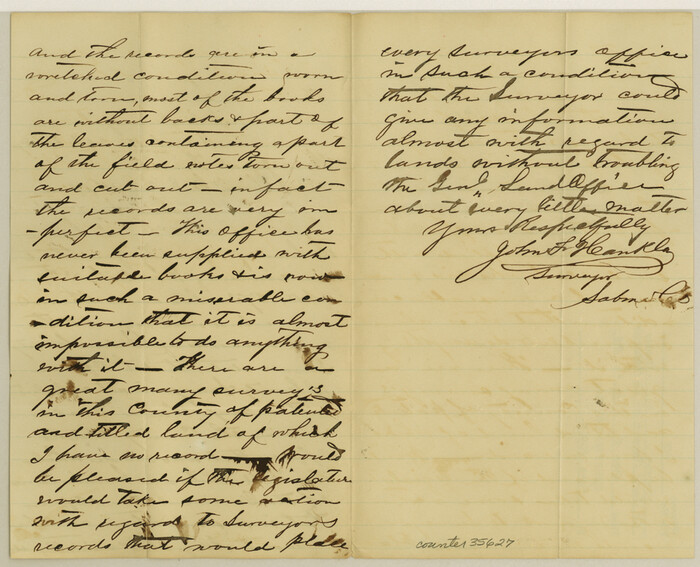 and the records are in a
wretched condition worn
and torn, most of the books
are without backs & part of
the leaves containing a part
of the field notes torn out
and cut out — in fact
the records are very im
-perfect — This office has
never been supplied with
suitable books & is now
in such a miserable con
-dition that it is almost
impossible to do anything
with it — There are a
great many survey's
in this County of patented
and titled land of which
I have no record would
be pleased if the legislature
would take some action
with regard to Surveyors
records that would place
every surveyors office
in such a condition
that the Surveyor could
give any information
almost with regard to
lands without troubling
the Genl Land Office
about every little matter
Yours Respectfully
John F.
Surveyor
Sabine Co
counter 35627